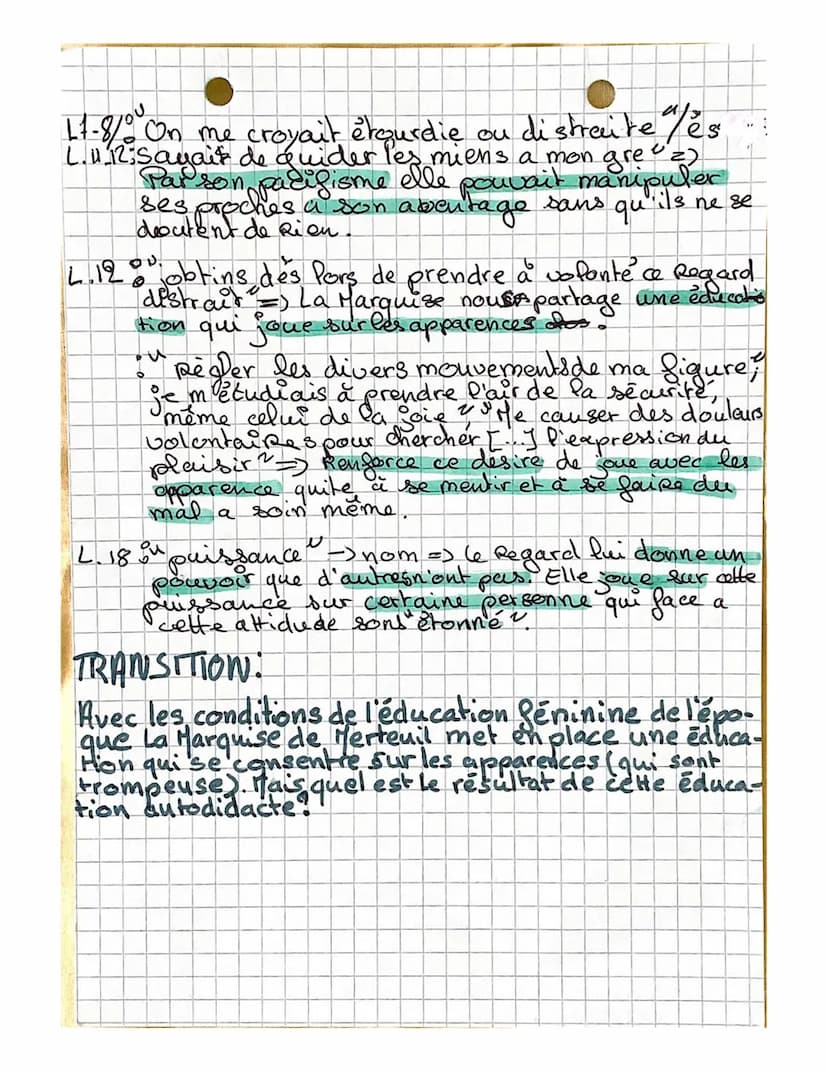 L7-8/: "On me croyait étourdie ou distraite"/és
L.11.12: Sayait de guider les miens a mon gre" =>
Par son pacifisme elle pouvait manipuler
ses proches a son aventage sans qu'ils ne se
doutent de Rien.
L.12 : "j'obtins dès lors de prendre à volonté ce Regard
distrait" => La Marquise nous partage une éduca
tion qui joue sur les apparences.
: "Règler les divers mouvements de ma figure";
je m'étudiais à prendre l'air de la sécurité,
même celui de la joie" "Me causer des douleurs
volontaires pour chercher [...] l'expression du
plaisir" => Renforce ce désire de joue avec les
apparence quite à se mentir et à se faire du
mal a soin même.
L.18 : "puissance" -> nom => Le Regard lui donne un
pouvoir que d'autres n'ont pas. Elle joue sur cette
puissance sur certaine personne qui face a
cette attidude sont "étonné".
TRANSITION:
Avec les conditions de l'éducation féninine de l'épo-
que La Marquise de Merteuil met en place une éduca-
tion qui se consentre sur les apparences (qui sont
trompeuse). Mais quel est le résultat de cette éduca-
tion autodidacte?